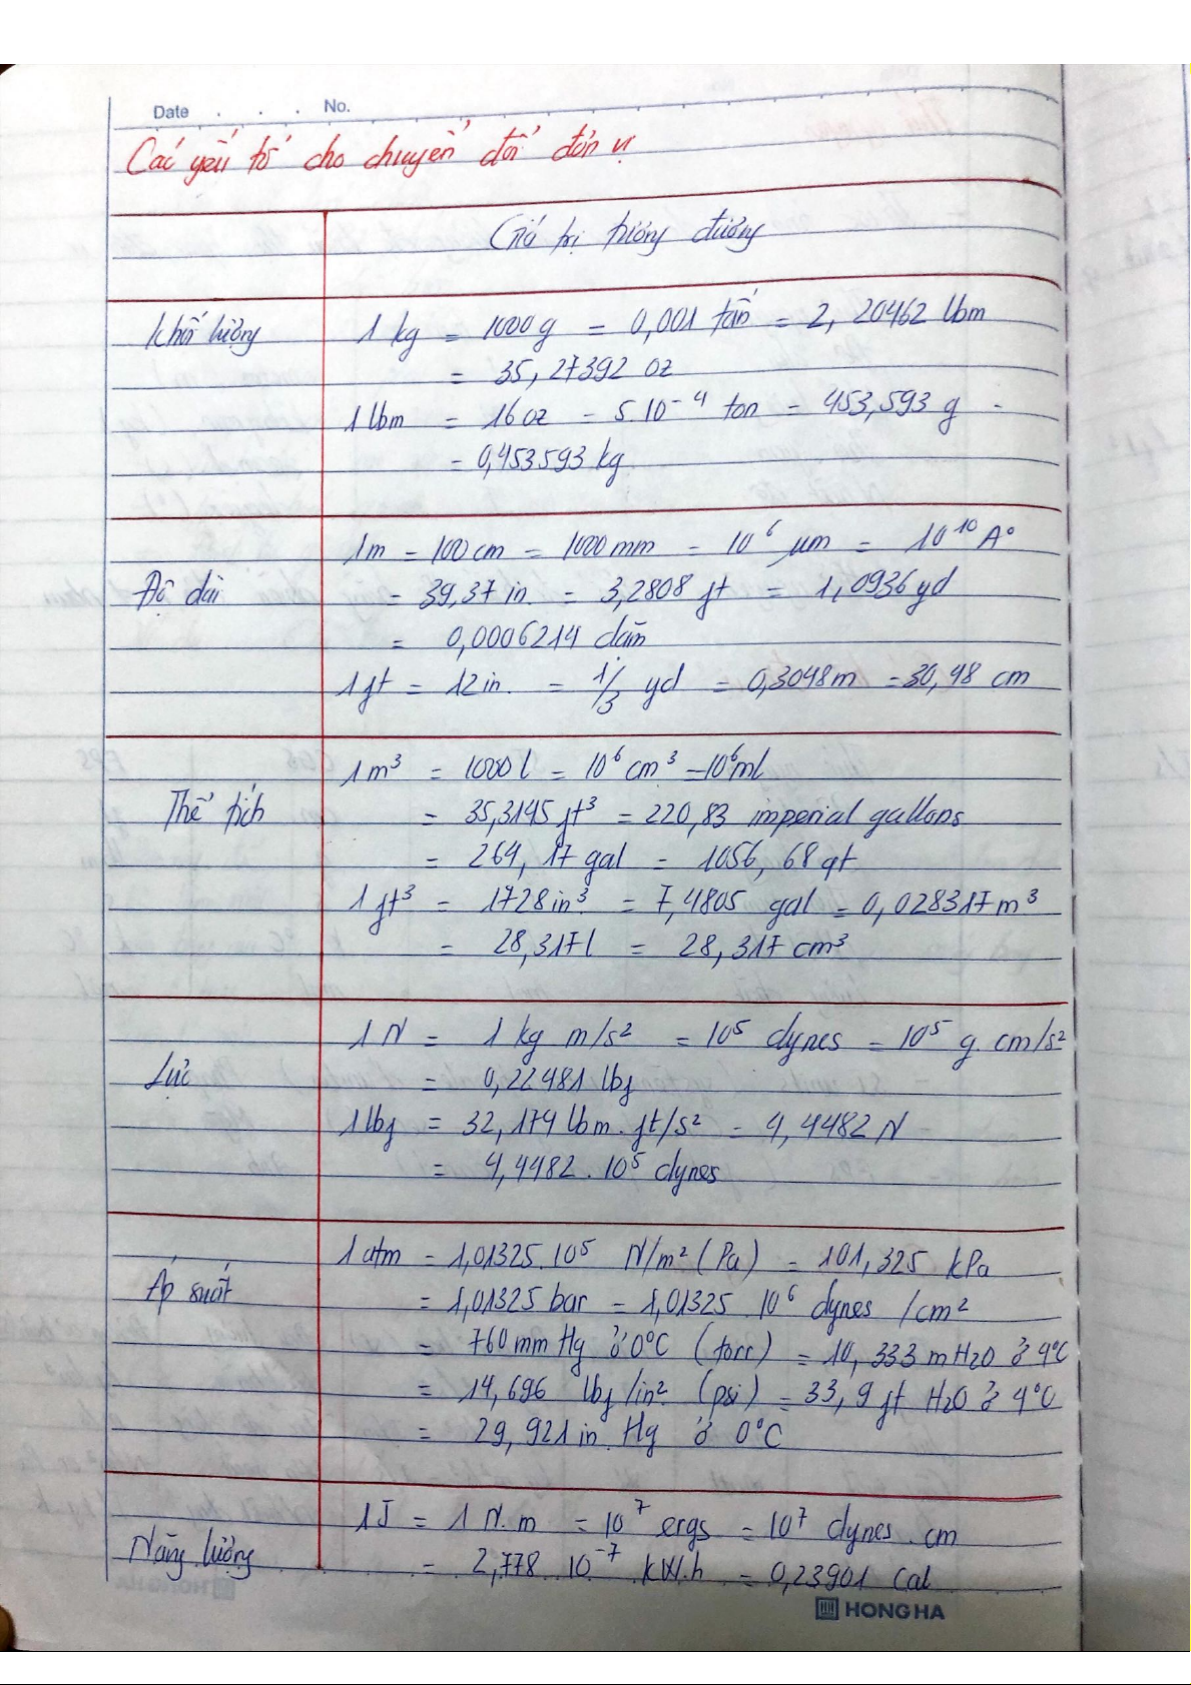 Date . . . No.
Các yếu tố cho chuyển đổi đơn vị
Giá trị tương đương
Khối lượng
1 kg = 1000 g = 0,001 tấn = 2,20462 lbm
= 35,27392 oz
1 lbm = 16 oz = 5.10⁻⁴ ton = 453,593 g =
= 0,453593 kg
Độ dài
1m = 100 cm = 1000 mm = 10⁶ µm = 10¹⁰ A°
= 39,37 in. = 3,2808 ft = 1,0936 yd
= 0,0006214 dặm
1 ft = 12 in. = 1/3 yd = 0,3048 m = 30,48 cm
Thể tích
1 m³ = 1000 l = 10⁶ cm³ = 10⁶ ml
= 35,3145 ft³ = 220,83 imperial gallons
= 264,17 gal = 1056,68 qt
1 ft³ = 1728 in³ = 7,4805 gal = 0,028317 m³
= 28,317 l = 28,317 cm³
Lực
1 N = 1 kg m/s² = 10⁵ dynes = 10⁵ g.cm/s²
= 0,22481 lbf
1 lbf = 32,174 lbm.ft/s² = 4,4482 N
= 4,4482.10⁵ dynes
Áp suất
1 atm = 1,01325.10⁵ N/m² (Pa) = 101,325 kPa
= 1,01325 bar = 1,01325.10⁶ dynes/cm²
= 760 mm Hg ở 0°C (torr) = 10,333 m H2O ở 4°C
= 14,696 lbf/in² (psi) = 33,9 ft H2O ở 4°C
= 29,921 in. Hg ở 0°C
Năng lượng
1 J = 1 N.m = 10⁷ ergs = 10⁷ dynes.cm
= 2,778.10⁻⁷ kW.h = 0,23901 cal
HONG HA